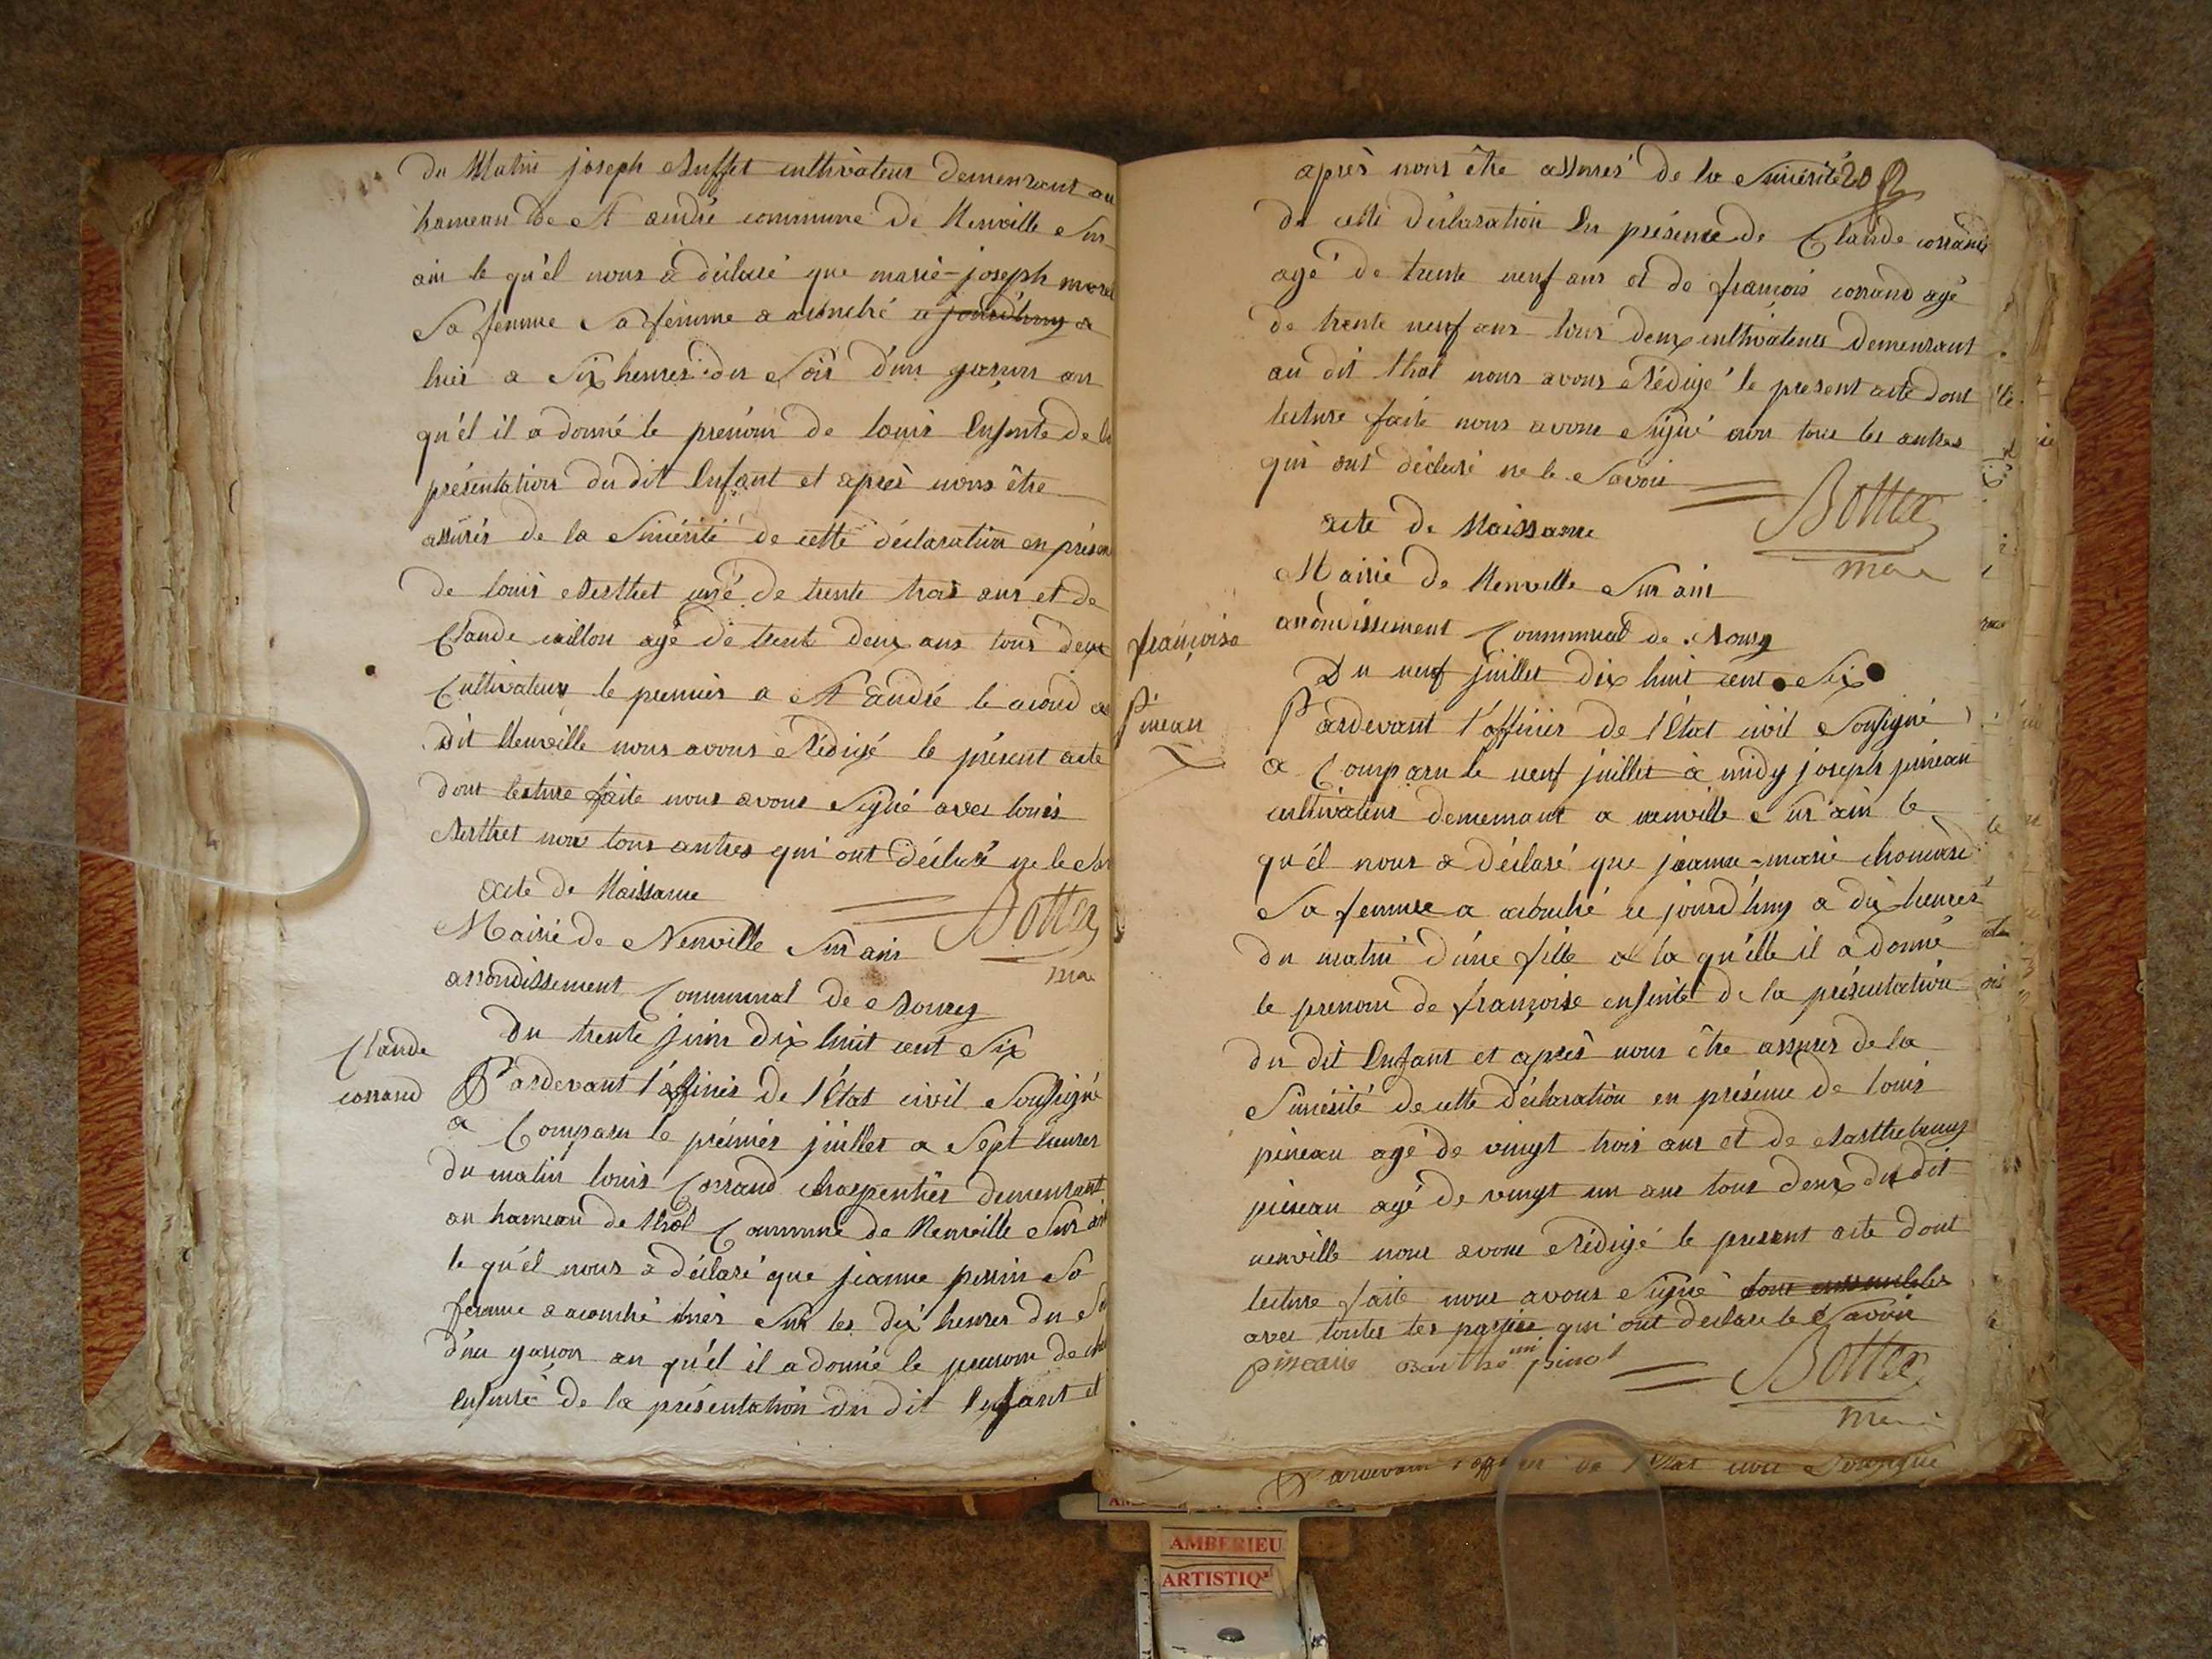 du Matin joseph Buffet cultivateur demeurant au
hameau de St andré commune de Neuville Sur
ain le qu'el nous à déclaré que marie-joseph morel
Sa femme Sa femme a acouché ce jourd'huy a
hier a Six heures du Soir d'un garson au
qu'él il a donné le prénom de louis Ensuite de la
présentation du dit Enfant et après nous être
assurés de la Sincérité de cette déclaration en présen
de louis Berthet agé de trente trois ans et de
Claude caillon agé de trente deux ans tous deux
Cultivateurs le premier a St andré le second au
dit Neuville nous avons Rédigé le présent acte
dont lecture faite nous avons Signé avec louis
Berthet non tous autres qui ont déclaré ne le
acte de Naissance
Mairie de Neuville Sur ain
arrondissement Communal de Bourg
du trente juin dix huit cent Six
Claude
corrand
Pardevant l'officier de l'Etat civil Soussigné
a Comparu le prémier juillet a Sept heures
du matin louis Corrand charpentier demeurant
au hameau de thol Commune de Neuville Sur ain
le qu'él nous a déclaré que jeanne perrin Sa
femme a acouché hier Sur les dix heures du
d'un garson au qu'él il a donné le prenom de
Ensuite de la présentation du dit Enfant et
après nous être assurés de la Sincérité 20
de cette déclaration En présence de Claude corrand
agé de trente neuf ans et de françois corrand agé
de trente neuf ans tous deux cultivateurs demeurant
au dit thol nous avons Rédigé le present acte dont
lecture faite nous avons Signé non tous les autres
qui ont déclaré ne le Savoir
acte de Naissance
Mairie de Neuville Sur ain
arrondissement Communal de Bourg
Du neuf juillet dix huit cent Six
françoise
Pineau
Pardevant l'officier de l'Etat civil Sousigné
a Comparu le neuf juillet à midy joseph pineau
cultivateur demeurant a neuville Sur ain le
qu'él nous a déclaré que jeanne-marie
Sa femme a acouché ce jourd'huy a dix heures
du matin d'une fille a la qu'elle il a donné
le prenom de françoise ensuite de la présentation
du dit Enfant et après nous être assurés de la
Sincérité de cette déclaration en présence de louis
pineau agé de vingt trois ans et de Barthelemy
pineau agé de vingt un ans tous deux du dit
neuville nous avons Rédigé le present acte dont
lecture faite nous avons Signé tous ensembles
avec toutes les parties qui ont déclaré le Savoir
pineau
Pardevant l'officier de l'Etat civil Soussigné
AMBERIEU
ARTISTIQ